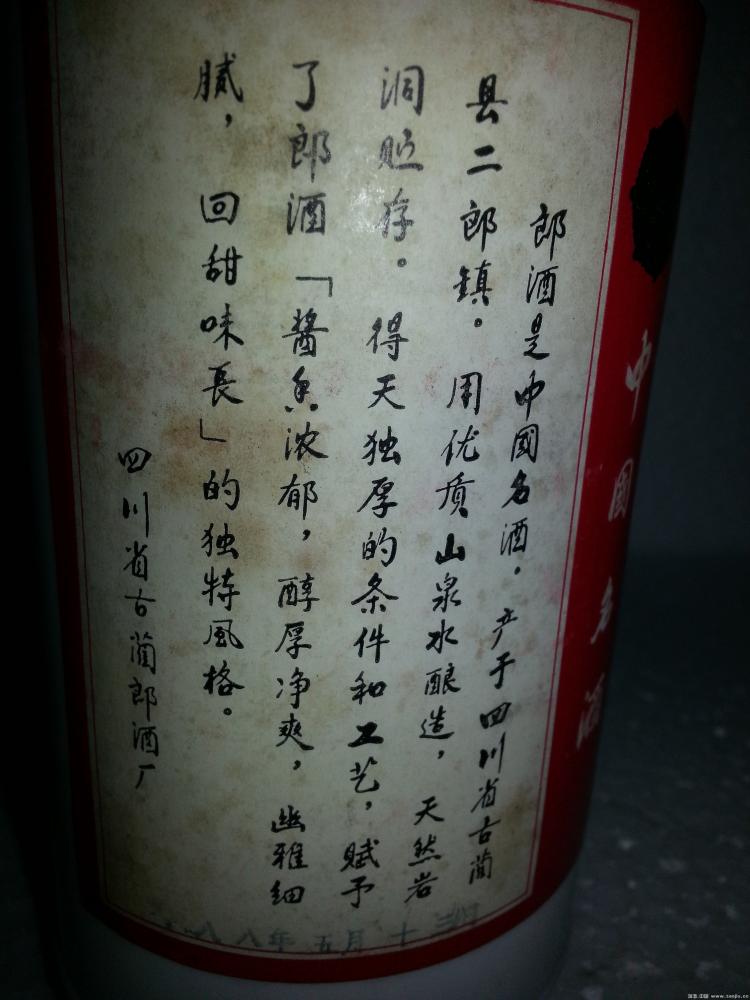 郎酒是中國名酒。产于四川省古蔺
县二郎镇。用优质山泉水酿造，天然岩
洞贮存。得天独厚的条件和工艺，赋予
了郎酒「酱香浓郁，醇厚净爽，幽雅细
腻，回甜味長」的独特風格。
四川省古蔺郎酒厂
八八年五月十三
中國名酒